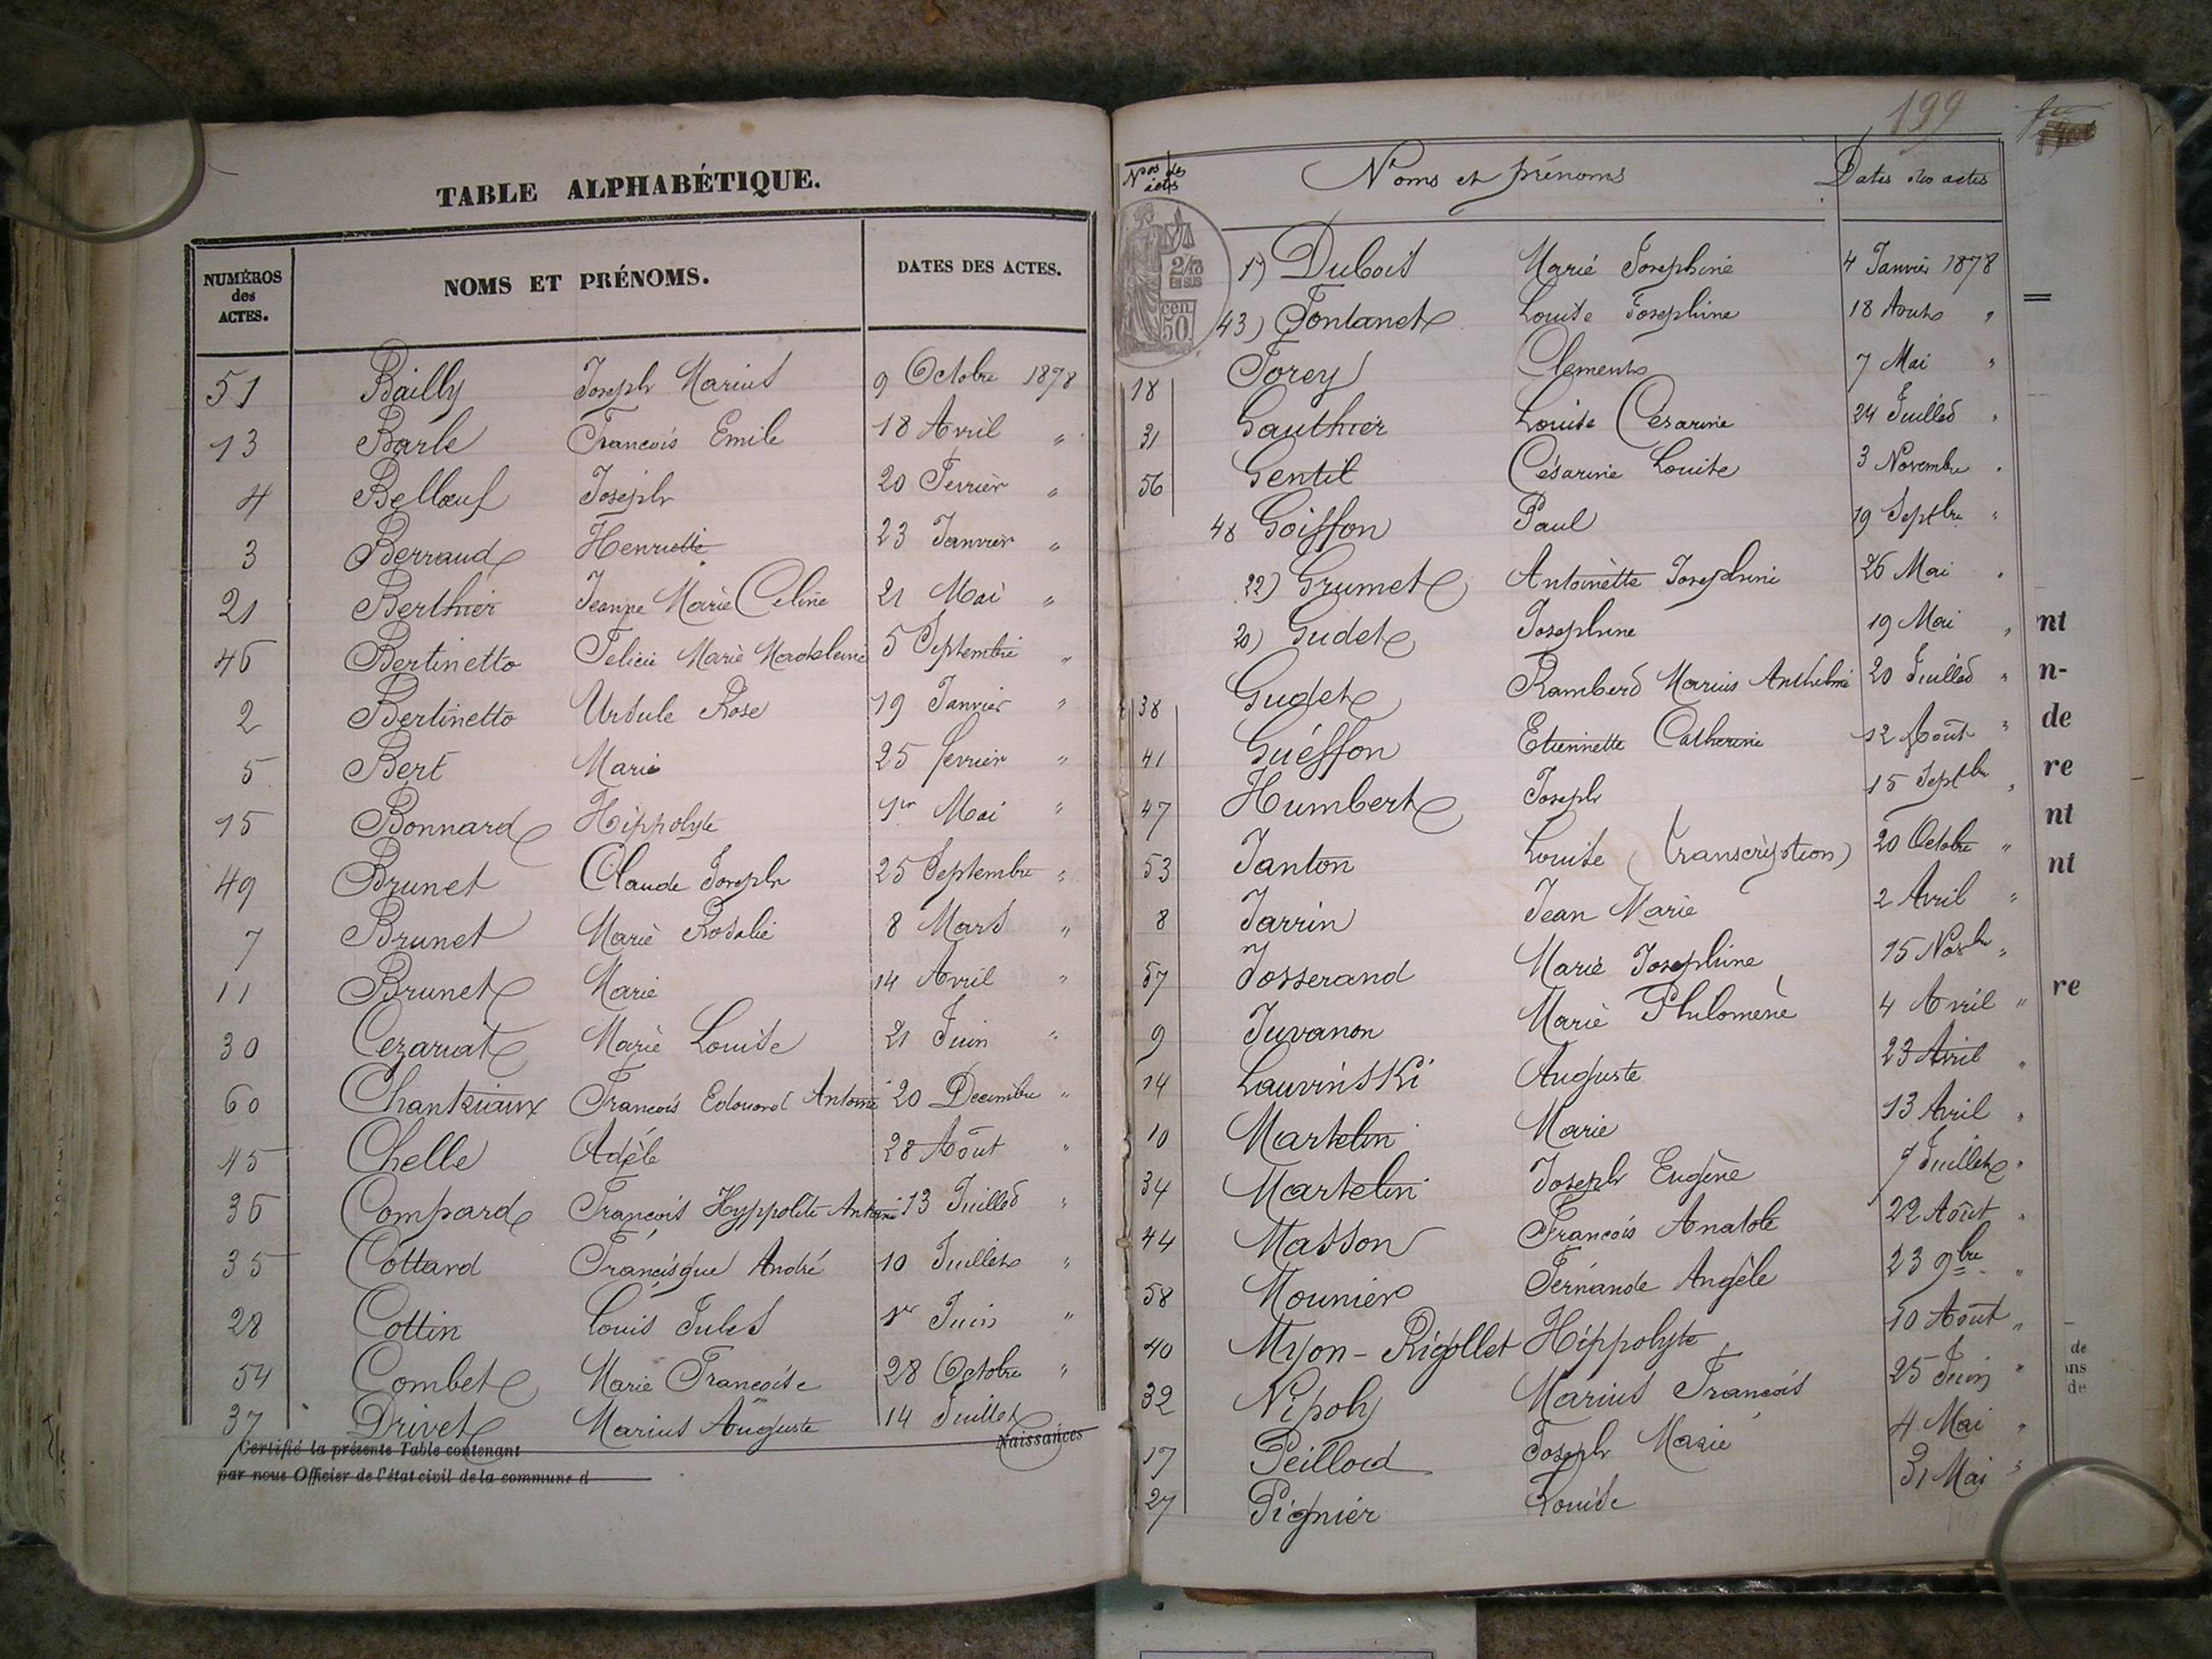 TABLE ALPHABÉTIQUE.
NUMÉROS des ACTES. NOMS ET PRÉNOMS. DATES DES ACTES.
51 Bailly Joseph Marius 9 Octobre 1878
13 Barle Francois Emile 18 Avril "
4 Bellœuf Joseph 20 Fevrièr "
3 Berraud Henriette 23 Janvièr "
21 Berthier Jeanne Marie Celine 21 Mai "
46 Bertinetto Felicie Marie Madeleine 5 Septembre "
2 Bertinetto Ursule Rose 19 Janvier "
5 Bert Marie 25 fevrier "
15 Bonnard Hippolyte 1er Mai "
49 Brunet Claude Joseph 25 Septembre "
7 Brunet Marie Rosalie 8 Mars "
11 Brunet Marie 14 Avril "
30 Cezariat Marie Louise 21 Juin "
60 Francois Edouard Antoine 20 Decembre "
45 Chelle Adèle 28 Août "
36 Compard François Hyppolite Antoine 13 Juillet "
35 Cottard Francisque André 10 Juillet "
28 Cottin Louis Jules 1er Juin "
54 Combet Marie Francoise 28 Octobre "
37 Drivet Marius Auguste 14 Juillet
Certifié la présente Table contenant Naissances
par nous Officier de l'état civil de la commune d
199
Nos des actes Noms et prénoms Dates des actes
2/10 EN SUS
50 cen
1) Dubois Marie Josephine 4 Janvier 1878
43) Fontanet Louise Josephine 18 Aout "
18 Forey Clement 7 Mai "
31 Gauthier Louise Cesarine 24 Juillet "
56 Gentil Césarine Louise 3 Novembre "
48 Goiffon Paul 19 Septbre "
22) Grumet Antoinètte Josephine 26 Mai "
20) Gudet Josephine 19 Mai "
38 Gudet Rambert Marius Anthelme 20 Juillet "
41 Guéffon Etiennette Catherine 12 Août "
47 Humbert Joseph 15 Septbre "
53 Janton Louise (transcription) 20 Octobre "
8 Jarrin Jean Marie 2 Avril "
57 Josserand Marie Josephine 15 Novbre "
9 Juvanon Marie Philomène 4 Avril "
14 Lauvinski Auguste 23 Avril "
10 Martelin Marie 13 Avril "
34 Martelin Joseph Eugène 7 Juillet "
44 Masson Francois Anatole 22 Août "
58 Mounier Fernande Angèle 23 9bre "
40 Myon-Rigollet Hippolyte 10 Août "
32 Nipoly Marius Francois 25 Juin "
17 Peillod Joseph Marie 4 Mai "
27 Pignier Louise 31 Mai "
nt
n-
de
re
nt
nt
re
de
ans
de